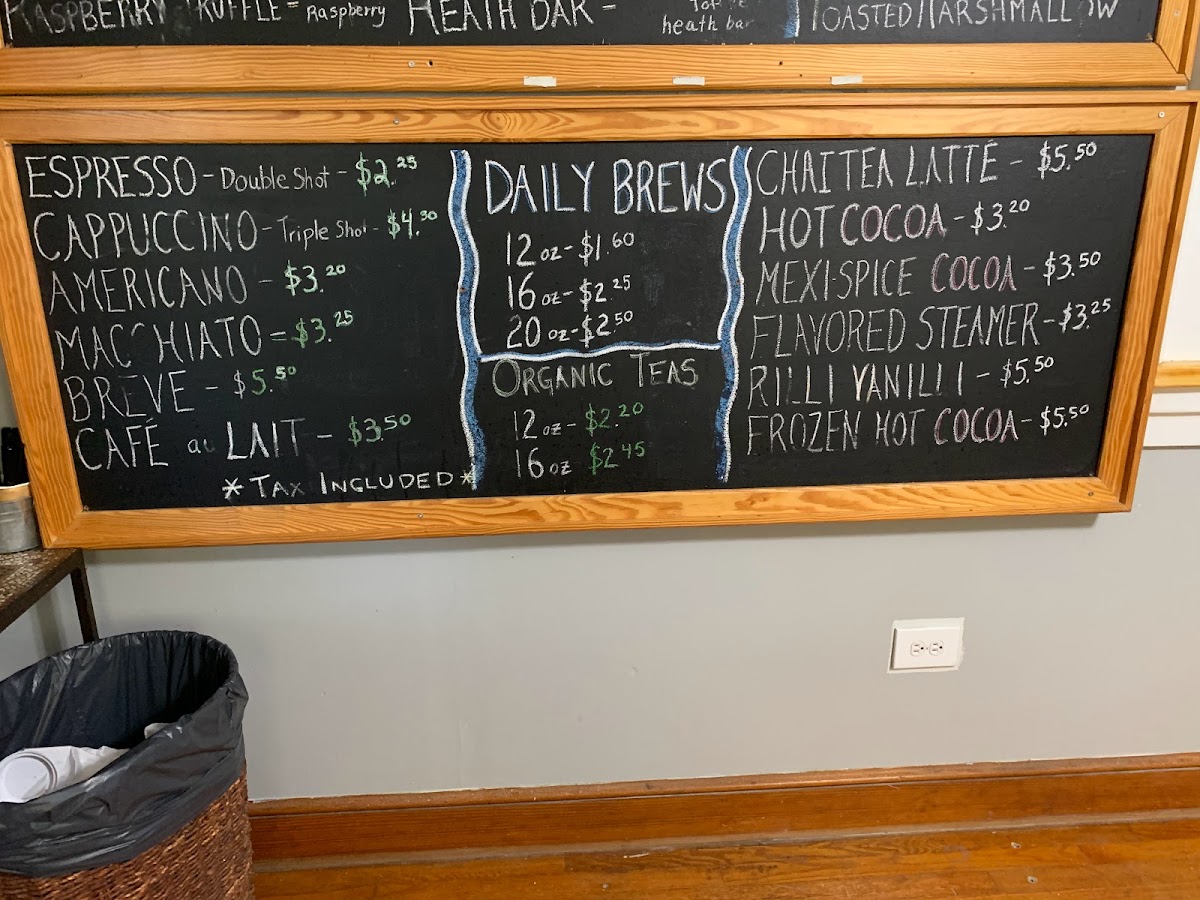 RASPBERRY TRUFFLE = Raspberry
HEATH BAR -
heath bar
TOASTED MARSHMALLOW
ESPRESSO - Double Shot - $2.25
CAPPUCCINO - Triple Shot - $4.30
AMERICANO - $3.20
MACCHIATO = $3.25
BREVE - $5.50
CAFÉ au LAIT - $3.50
* TAX INCLUDED *
DAILY BREWS
12 oz - $1.60
16 oz - $2.25
20 oz - $2.50
ORGANIC TEAS
12 oz - $2.20
16 oz $2.45
CHAI TEA LATTE - $5.50
HOT COCOA - $3.20
MEXI-SPICE COCOA - $3.50
FLAVORED STEAMER - $3.25
RILLI VANILLI - $5.50
FROZEN HOT COCOA - $5.50